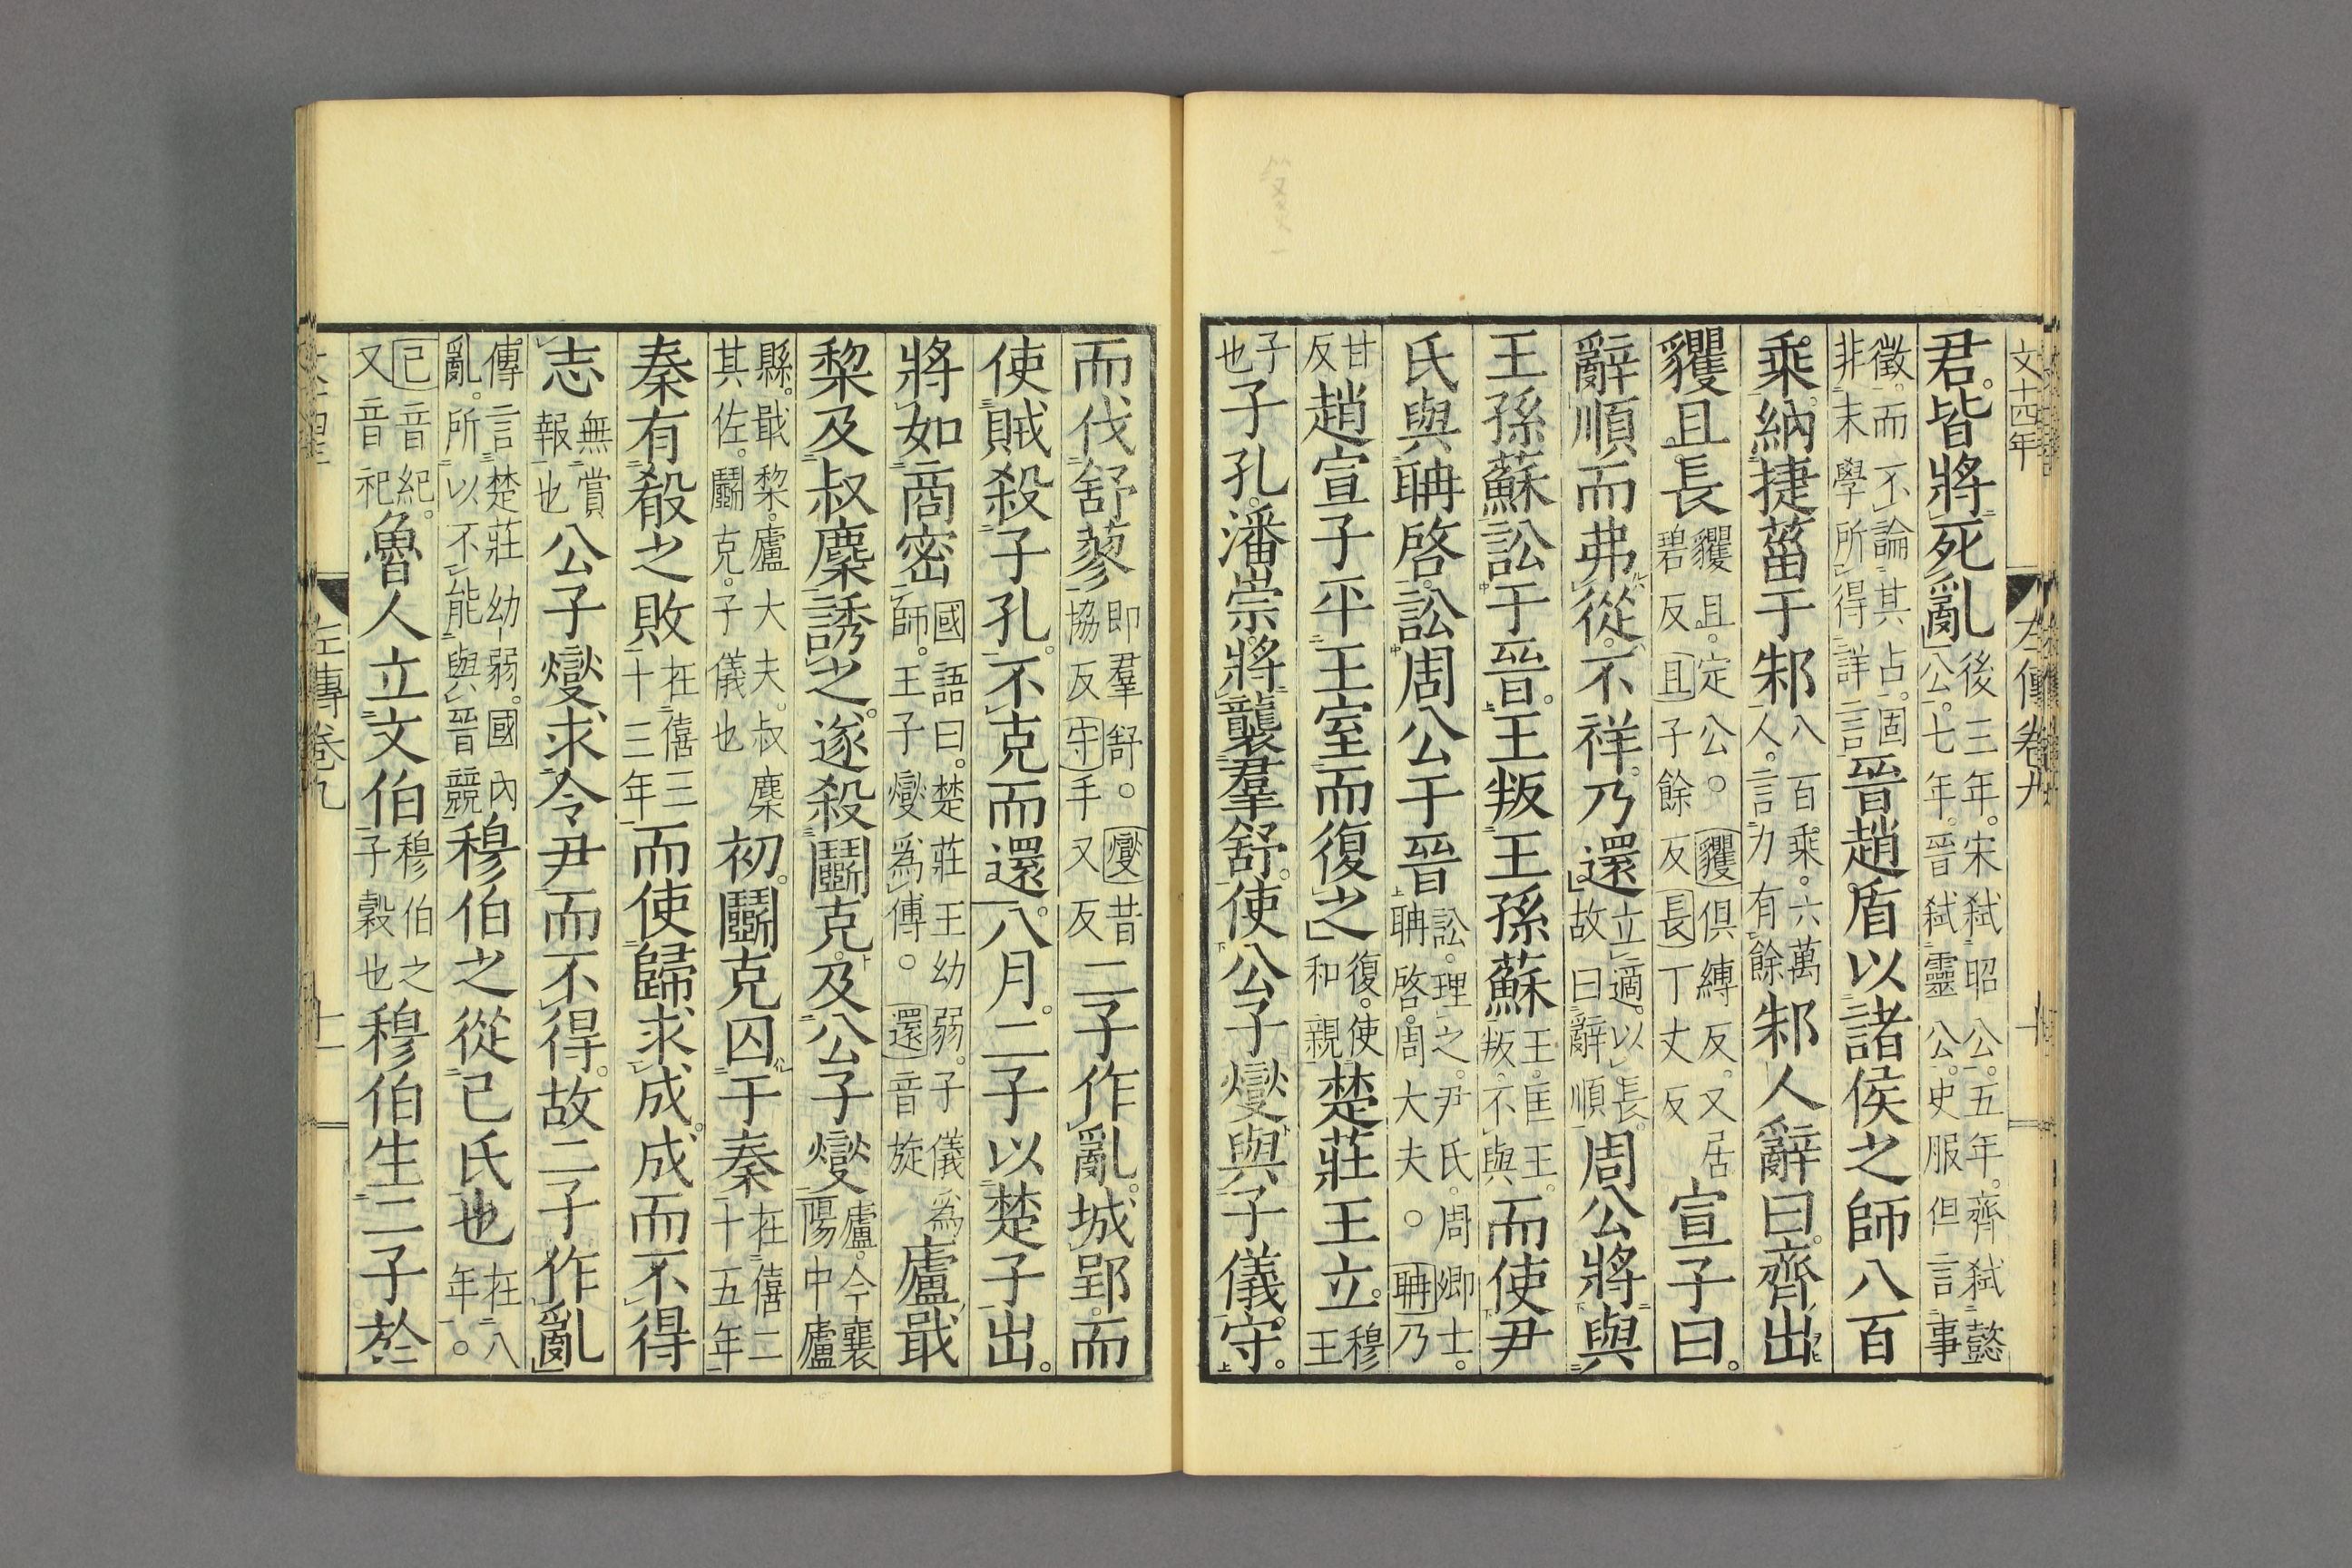 文十四年 左傳卷九 十
君。皆將死亂後三年。宋弑昭公。五年。齊弑懿公。七年。晉弑靈公。史服但言事
徵。而不論其占。固非末學所得詳言晉趙盾以諸侯之師八百
乘。納捷菑于邾八百乘。六萬人。言力有餘邾人辭曰。齊出
貜且長貜且。定公。○貜俱縛反。又居碧反且子餘反長丁丈反宣子曰。
辭順而弗從。不祥。乃還立適。以長。故曰辭順周公將與
王孫蘇訟于晉。王叛王孫蘇王。匡王。叛。不與而使尹
氏與聃啓。訟周公于晉訟。理之。尹氏。周卿士。聃啓。周大夫。○聃乃
甘反趙宣子平王室而復之復。使和親楚莊王立。穆王
子也子孔。潘崇將襲羣舒。使公子燮與子儀守。
而伐舒蓼即羣舒。○燮昔協反守手又反二子作亂。城郢。而
使賊殺子孔。不克而還。八月。二子以楚子出。
將如商密國語曰。楚莊王幼弱。子儀爲師。王子燮爲傅。○還音旋廬戢
棃及叔麋誘之。遂殺鬭克。及公子燮廬。今襄陽中廬
縣。戢棃。廬大夫。叔麋其佐。鬭克。子儀也初。鬭克囚于秦在僖二十五年
秦有殽之敗在僖三十三年而使歸求成。成而不得
志無賞報也公子燮求令尹而不得。故二子作亂
傳言楚莊幼弱。國內亂。所以不能與晉競穆伯之從己氏也在八年。○
己音紀。又音祀魯人立文伯穆伯之子穀也穆伯生二子於
左傳卷九 十一